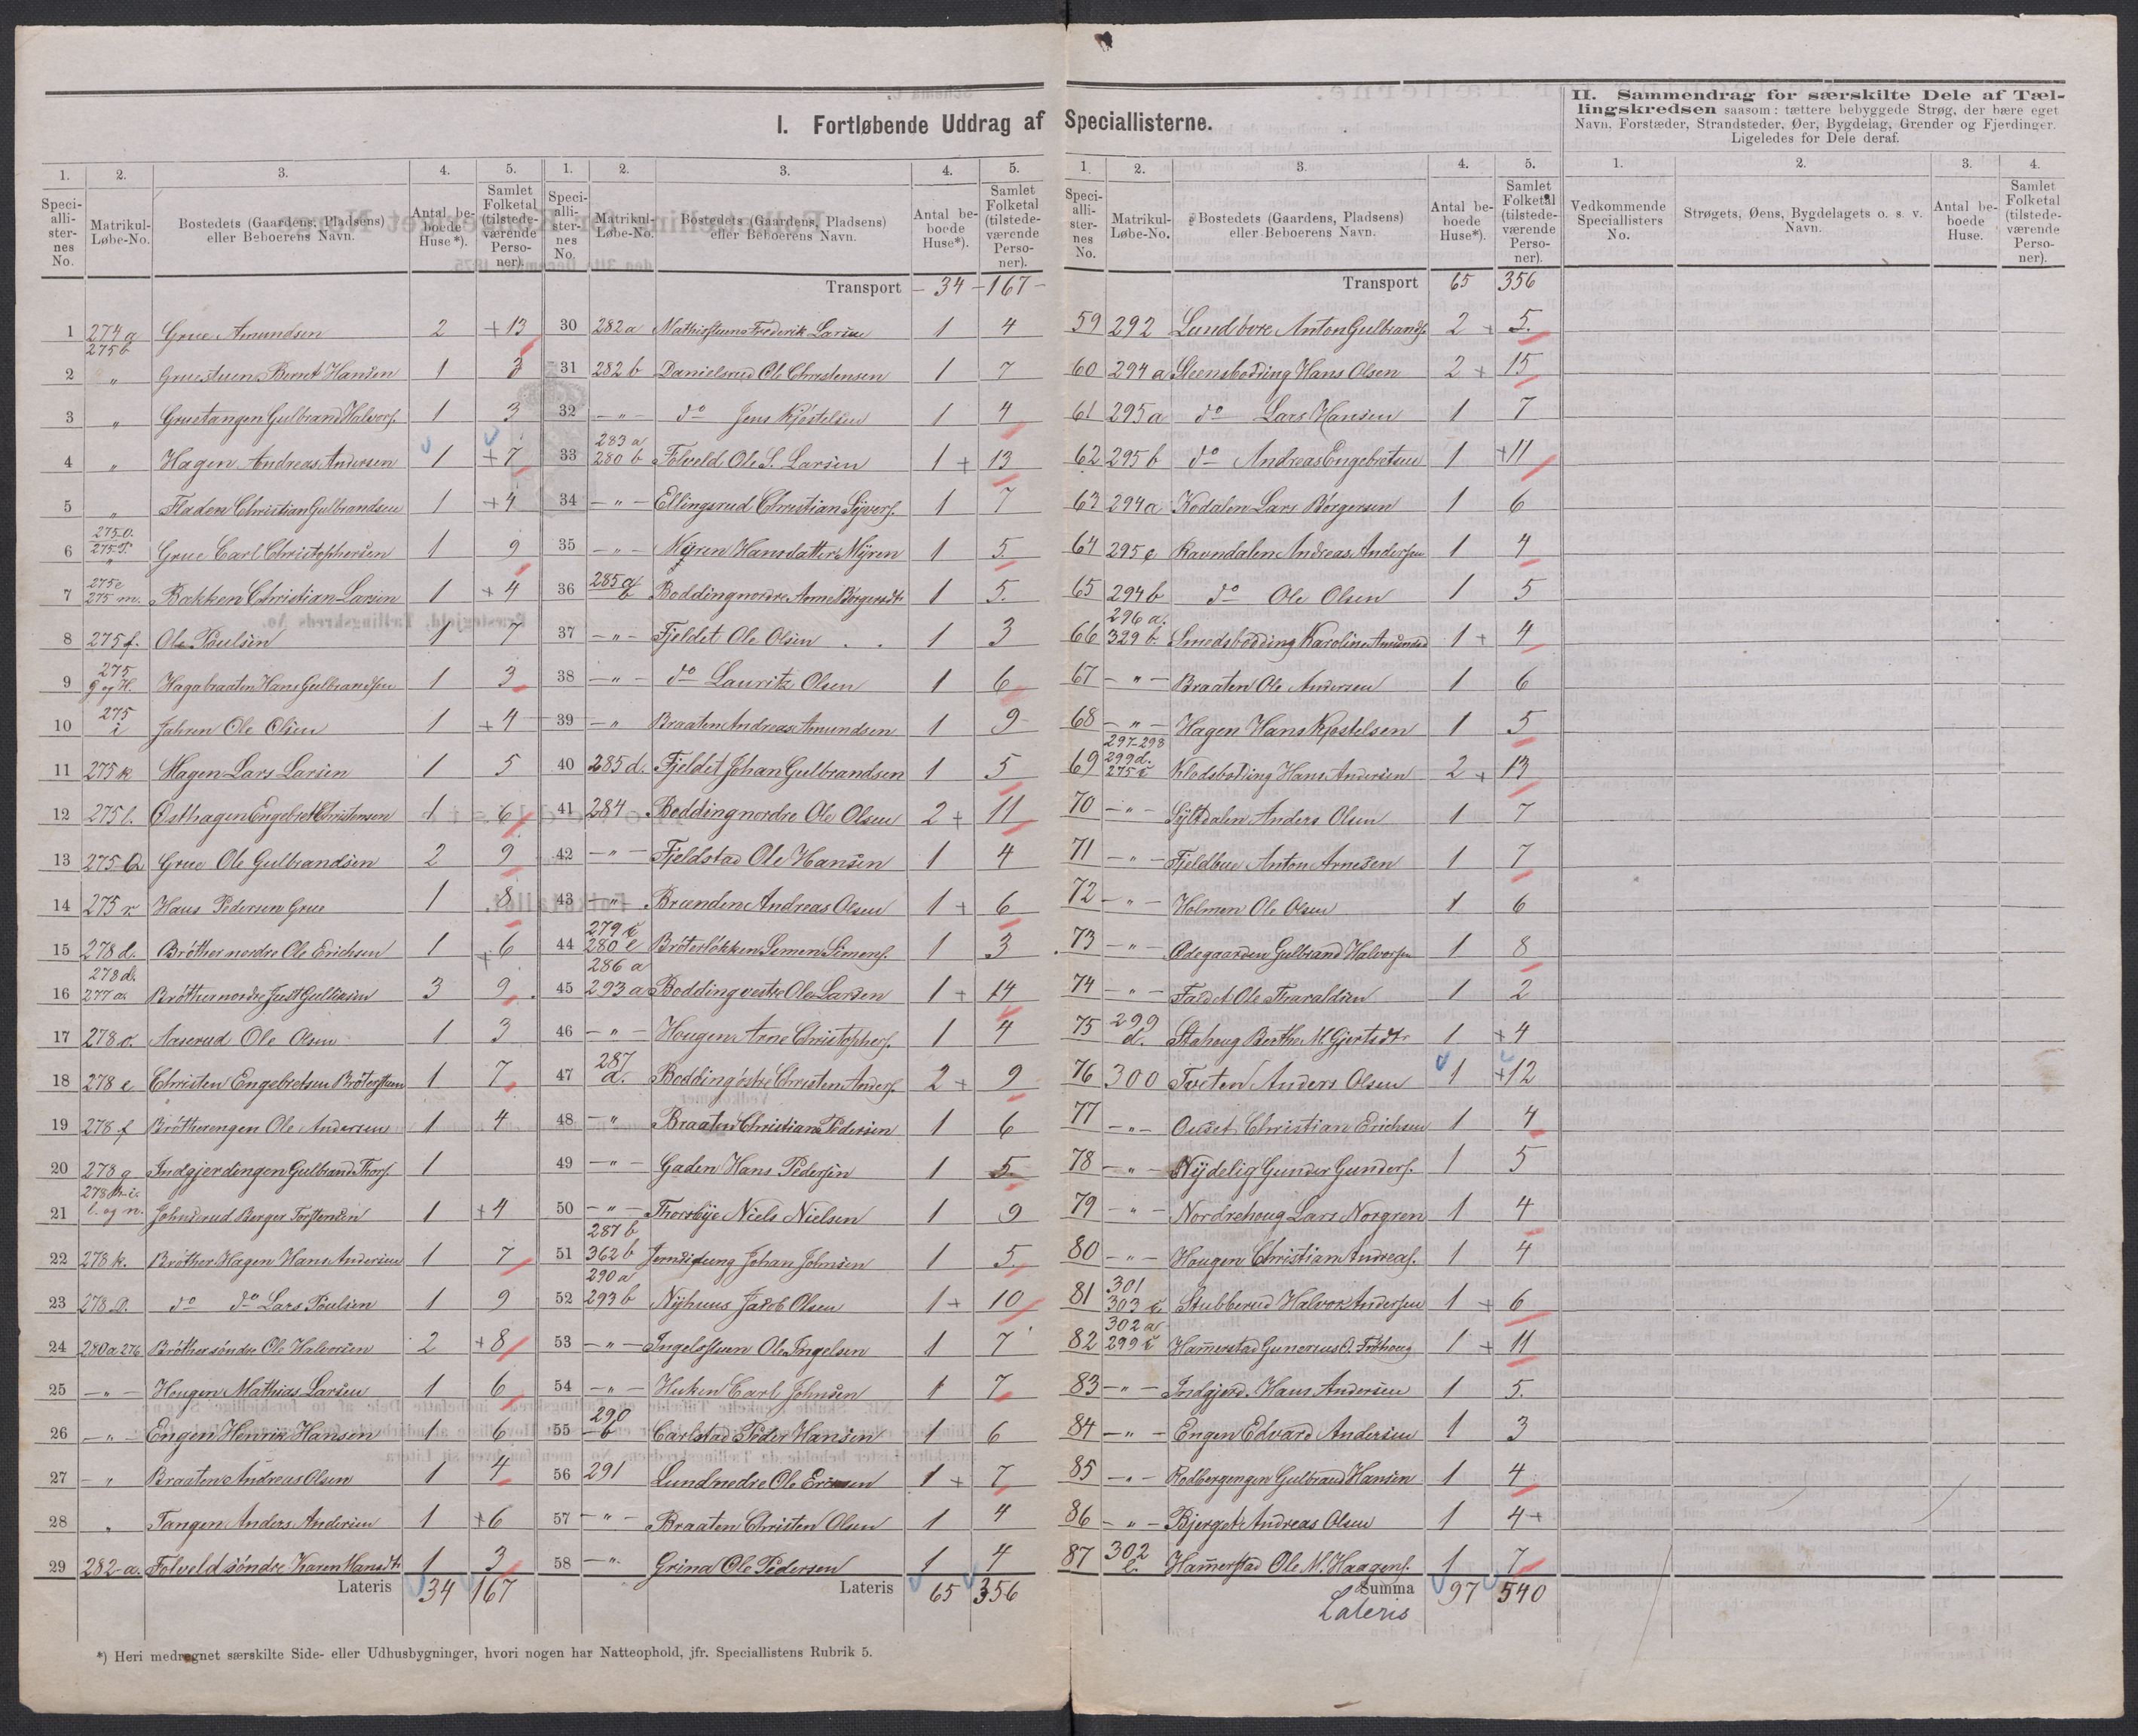 I. Fortløbende Uddrag af Speciallisterne.
1. 2. 3. 4. 5.
Speciallisternes No. Matrikul-Løbe-No. Bostedets (Gaardens, Pladsens) eller Beboerens Navn. Antal beboede Huse*). Samlet Folketal (tilstedeværende Personer).
1 274a 275b Grue Amundsen 2 +13
2 " Gruestuen Bernt Hansen 1 3
3 " Gruetangen Gulbrand Halvors. 1 3
4 " Hagen Andreas Andersen 1 +7
5 " Fladen Christian Gulbrandsen 1 +4
6 Grue Carl Christophersen 1 9
7 275e 275m. Bakken Christian Larsen 1 +4
8 275f. Ole Poulsen 1 7
9 275 g og H. Hagabraaten Hans Gulbrandsen 1 3
10 275 i Jahren Ole Olsen 1 +4
11 275k Hagen Lars Larsen 1 5
12 275l. Østhagen Engebret Christensen 1 6
13 275 Grue Ole Gulbrandsen 2 9
14 275r Hans Pedersen Grue 1 8
15 278d. Brøther nordre Ole Erichsen 1 +6
16 278d. 277a Brøther nordre Just Gulliksen 3 9
17 278o. Aaserud Ole Olsen 1 3
18 278e Christen Engebretsen Brøterstuen 1 7
19 278f Brøtherengen Ole Andersen 1 4
20 278g Indgjerdingen Gulbrand Thors. 1
21 278h-i- l. og n. Johnsrud Berger Torstensen 1 +4
22 278k. Brøther Hagen Hans Andersen 1 7
23 278 do do Lars Poulsen 1 9
24 280a 276 Brøther søndre Ole Halvorsen 2 +8
25 -"- Hougen Mathias Larsen 1 6
26 -"- Engen Henrik Hansen 1 6
27 -" Braaten Andreas Olsen 1 4
28 " Tangen Anders Andersen 1 +6
29 282-a. Folveld søndre Karen Hansdt. 1 3
Lateris 34 167
1. 2. 3. 4. 5.
Speciallisternes No. Matrikul-Løbe-No. Bostedets (Gaardens, Pladsens) eller Beboerens Navn. Antal beboede Huse*). Samlet Folketal (tilstedeværende Personer).
Transport - 34 - 167 -
30 282a Mathisstuen Frederik Larsen 1 4
31 282b Danielsrud Ole Christensen 1 7
32 -"- do Jens Kjøstelsen 1 4
33 283a 280b Folveld Ole S. Larsen 1 + 13
34 -"- Ellingsrud Christian Syvers. 1 7
35 -"- Myren Hansdatter Myren 1 5.
36 285a b Bodding nordre Arne Børgersdt. 1 5.
37 -"- Fjeldet Ole Olsen 1 3
38 -"- do Lauritz Olsen 1 6
39 -" Braaten Andreas Amundsen 1 9
40 285d. Fjeldet Johan Gulbrandsen 1 5
41 284 Bodding nordre Ole Olsen 2 + 11
42 -"- Fjeldstad Ole Hansen 1 4
43 -"- Brænden Andreas Olsen 1 + 6
44 279c 280e Brøterløkken Simen Simens. 1 3
45 286a 293a Bodding vestre Ole Larsen 1 + 14
46 -"- Hougen Arne Christophers. 1 4
47 287 a. Bodding østre Christen Anders. 2 + 9
48 -" Braaten Christian Pedersen 1 6
49 -"- Gaden Hans Pedersen 1 5.
50 -"- Thorsbye Niels Nielsen 1 9
51 287b 362b Johan Johnsen 1 5.
52 290a 293b Nyhuus Jacob Olsen 1 + 10
53 -"- Ingelsstuen Ole Ingelsen 1 7
54 -"- Huken Carl Johnsen 1 7
55 290 b Carlstad Peder Hansen 1 6
56 291 Lund nedre Ole Ericsen 1 + 7
57 -"- Braaten Christen Olsen 1 4
58 -"- Grina Ole Pedersen 1 4
Lateris 65 356
*) Heri medregnet særskilte Side- eller Udhusbygninger, hvori nogen har Natteophold, jfr. Speciallistens Rubrik 5.
1. 2. 3. 4. 5.
Speciallisternes No. Matrikul-Løbe-No. Bostedets (Gaardens, Pladsens) eller Beboerens Navn. Antal beboede Huse*). Samlet Folketal (tilstedeværende Personer).
Transport 65 356
59 292 Lund øvre Anton Gulbrands. 2 + 5.
60 294a Steensbodding Hans Olsen 2 + 15
61 295a do Lars Hansen 1 7
62 295b do Andreas Engebretsen 1 +11
63 294a Kodalen Lars Børgersen 1 6
64 295c Ravndalen Andreas Andersen 1 4
65 294b do Ole Olsen 1 5
66 296a. 329b. Smedsbodding Karoline Amundsd 1 + 4
67 -"- Braaten Ole Andersen 1 6
68 -"- Hagen Hans Kjøstelsen 1 5
69 297-298 299d. 275c Klodsbodding Hans Andersen 2 + 13
70 -"- Syltdalen Anders Olsen 1 7
71 -"- Fjeldbue Anton Arnesen 1 7
72 -"- Holmen Ole Olsen 1 6
73 -"- Ødegaarden Gulbrand Halvorsen 1 8
74 -"- Faldet Ole Tharaldsen 1 2
75 299 d. Stahoug Berthe M. Gjertsdtr 1 +4
76 300 Tveten Anders Olsen 1 +12
77 -"- Ouset Christian Erichsen 1 4
78 -"- Nydelig Gunder Gunders. 1 5
79 -"- Nordrehoug Lars Norgren 1 4
80 -"- Haugen Christian Andreas. 1 4
81 301 303c Stubberud Halvor Andersen 1 + 6
82 302a 299c Hamerstad Gunerius O. Frøhoug 1 + 11
83 -"- Indgjerd. Hans Andersen 1 5.
84 -"- Engen Edvard Andersen 1 3
85 -"- Rodbergengen Gulbrand Hansen 1 4
86 -"- Bjerget Andreas Olsen 1 4+
87 302 b. Hamerstad Ole M. Haagens. 1 7
Summa 97 540
Lateris
II. Sammendrag for særskilte Dele af Tællingskredsen saasom: tættere bebyggede Strøg, der bære eget Navn, Forstæder, Strandsteder, Øer, Bygdelag, Grender og Fjerdinger. Ligeledes for Dele deraf.
1. 2. 3. 4.
Vedkommende Speciallisters No. Strøgets, Øens, Bygdelagets o. s. v. Navn. Antal beboede Huse. Samlet Folketal (tilstedeværende Personer).